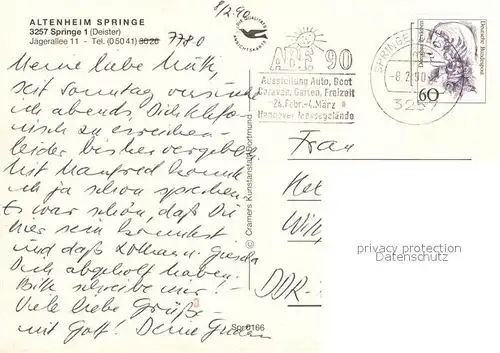 ALTENHEIM SPRINGE
3257 Springe 1 (Deister)
Jägerallee 11 - Tel. (0 50 41) 3026 7780
8/2.90
Meine liebe
seit Sonntag versuche
ich abends, Dich telefo-
nisch zu erreichen -
leider bisher vergebens.
Mit Manfred konnte
ich ja schon sprechen.
Es war schön, daß Du
hier sein konntest
und daß Lothar u. Gisela
Dich abgeholt haben.
Bitte schreibe mir! -
Viele liebe Grüße -
mit Gott! Deine
© Cramers Kunstanstalt Dortmund
Spr 0166
3
ABF 90
Ausstellung Auto, Boot
Caravan, Garten, Freizeit
24. Febr. - 4. März
Hannover Messegelände
SPRINGE
-8.2.90
3257
Deutsche Bundespost
60
Frau
DDR-
privacy protection
Datenschutz